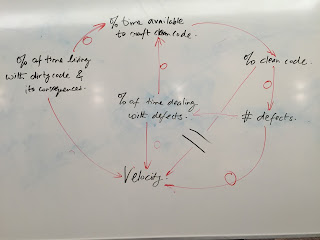 % time available
to craft clean code.
% of time living
with dirty code &
its consequences.
% clean code.
% of time dealing
with defects.
# defects.
Velocity